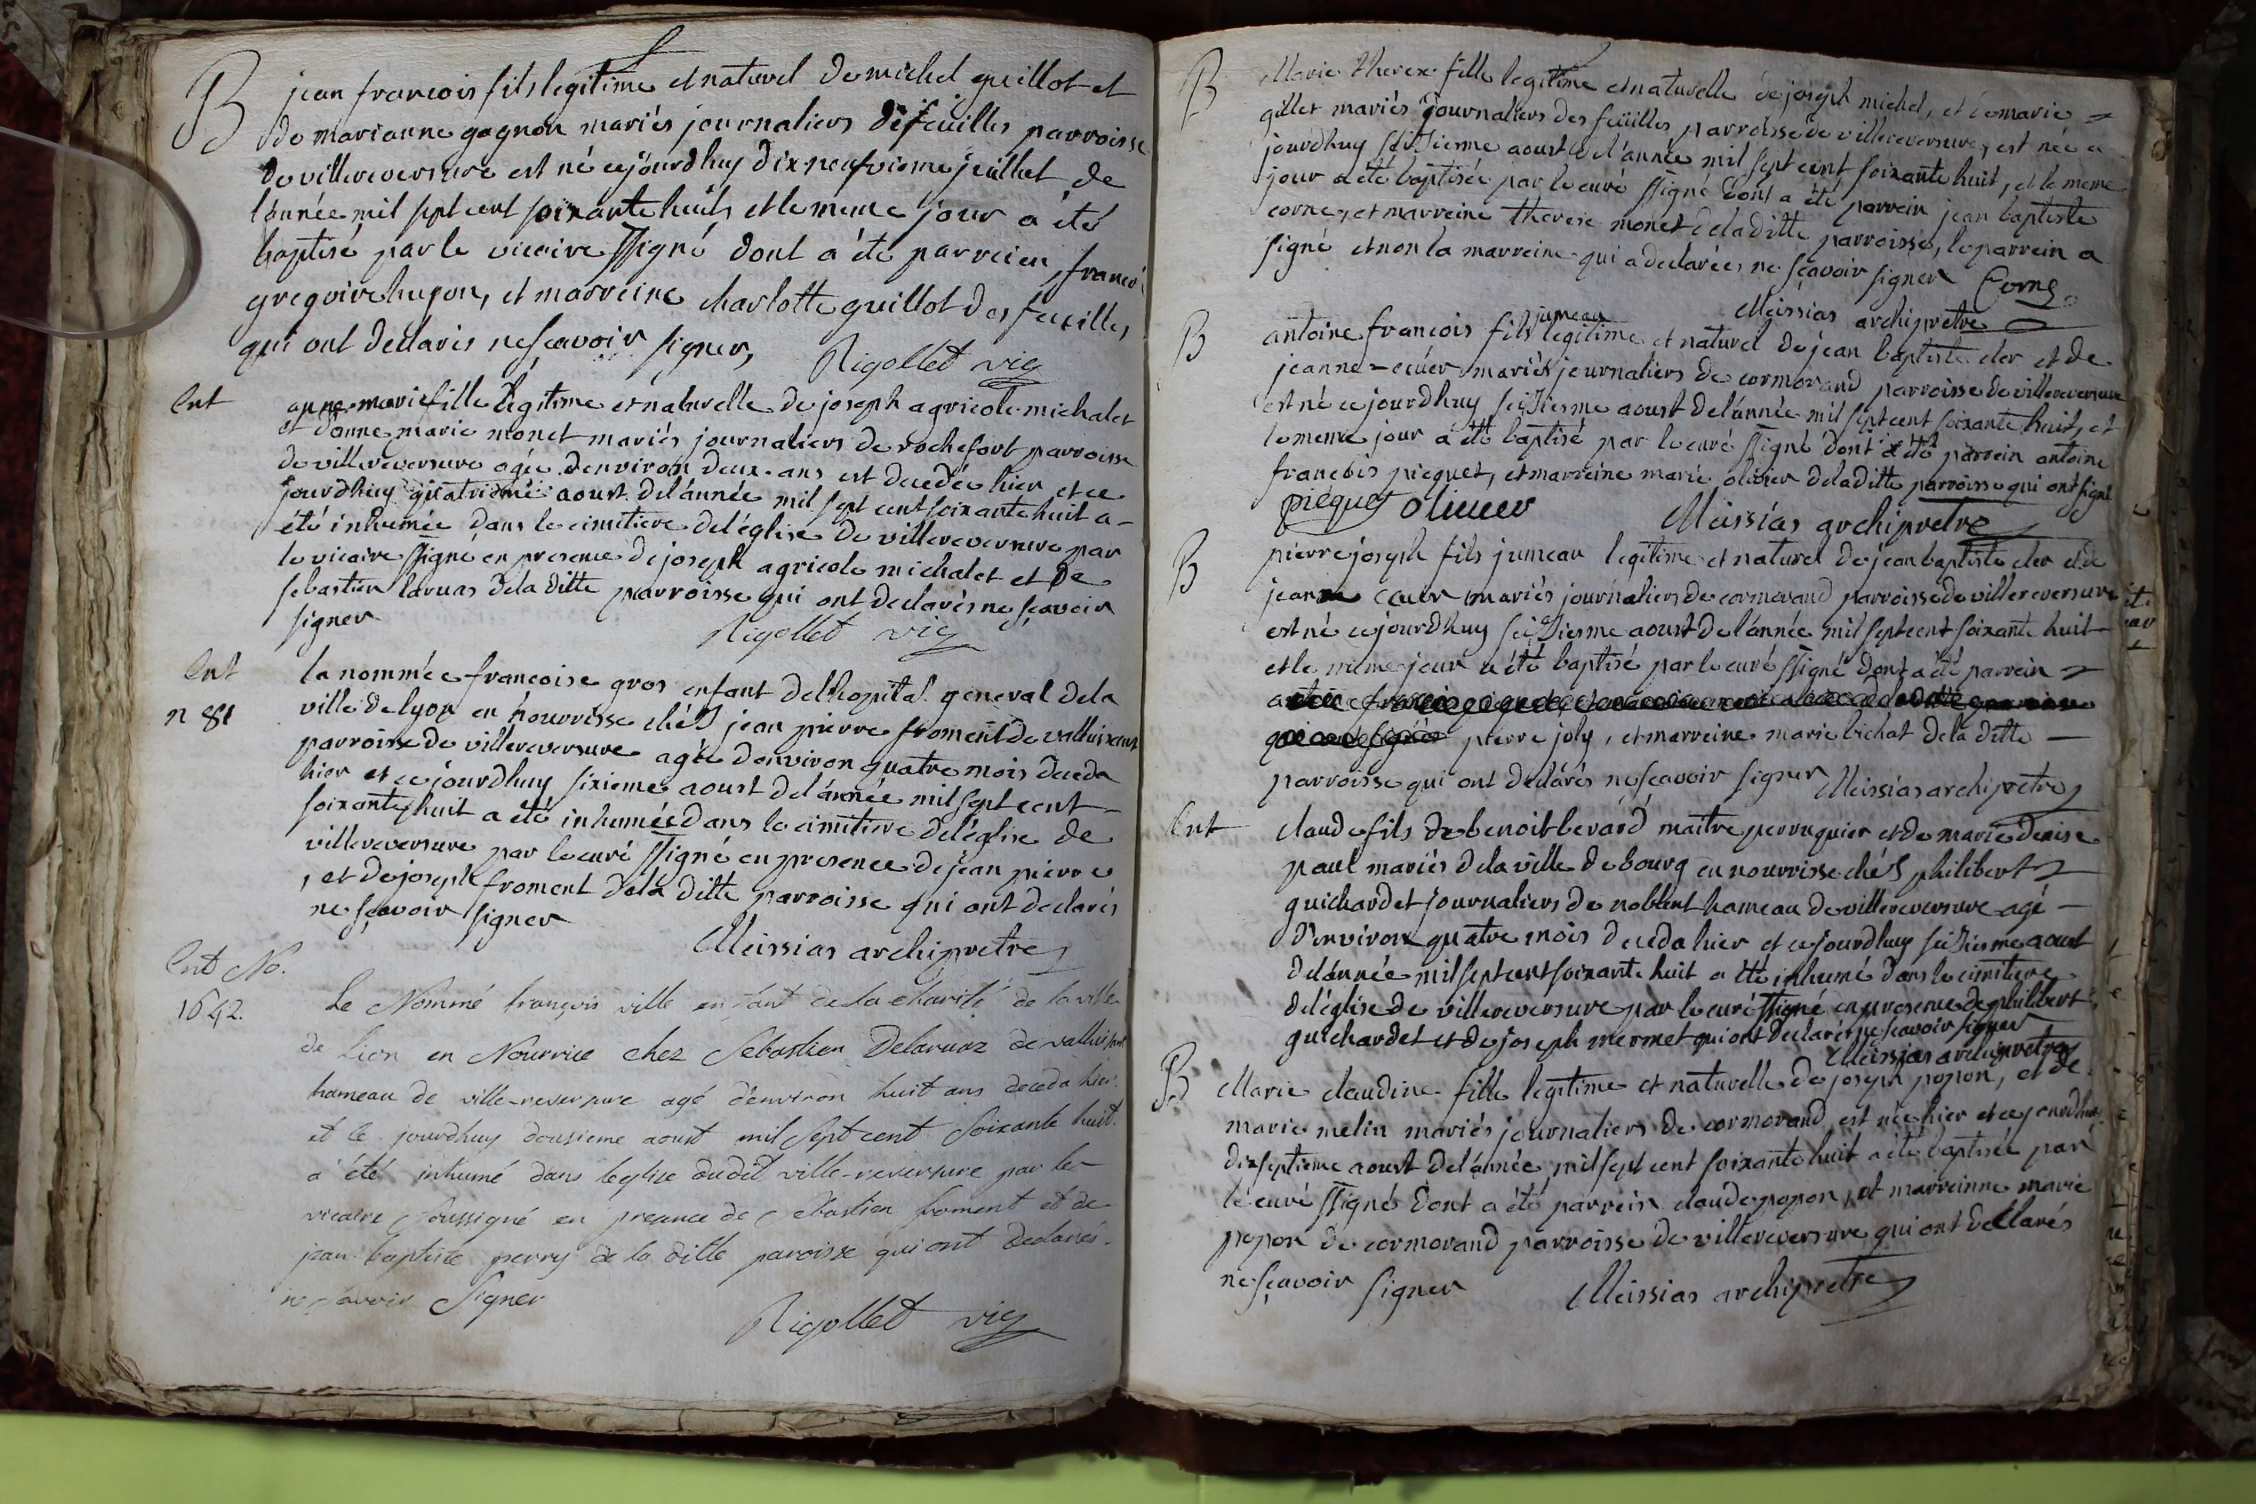 B jean francois fils legitime et naturel de michel guillot et
de marianne gagnon mariés journaliers des feuilles parroisse
de villereversure est né cejourdhuy dix neufvieme juillet de
l'année mil sept cent soixante huit, et le meme jour a été
baptisé par le vicaire ssigné dont a été parrein francois
gregoire hugon, et marreine charlotte guillot des feuilles,
qui ont declarés ne sçavoir signer, Rigollet vic
Ent anne marie fille legitime et naturelle de joseph agricole michalet
et d'anne marie monet mariés journaliers de rochefort parroisse
de villereversure agée d'environ deux ans est decedée hier et ce
jourdhuy quatrieme aoust de l'année mil sept cent soixante huit a
été inhumée dans le cimitiere de l'église de villereversure par
le vicaire ssigné en presence de joseph agricole michalet et de
sebastien laruas de la ditte parroisse qui ont declarés ne sçavoir
signer Rigollet vic
Ent la nommée francoise gros enfant de l'hopital general de la
n 81 ville de lyon en nourrisse chés jean pierre froment de valluissant
parroisse de villereversure agée d'environ quatre mois deceda
hier et cejourdhuy sixieme aoust de l'année mil sept cent
soixante huit a été inhumée dans le cimitiere de l'église de
villereversure par le curé ssigné en presence de jean pierre
, et de joseph froment de la ditte parroisse qui ont declarés
ne sçavoir signer Meissias archipretre
Ent No.
1642. Le Nommé françois ville enfant de la charité de la ville
de Lion en Nourrice chez Sebastien Delaruaz de valluisant
hameau de ville-reversure agé d'environ huit ans deceda hier
et le jourdhuy dousieme aoust mil sept cent soixante huit
a été inhumé dans leglise dudit ville-reversure par le
vicaire soussigné en presence de Sebastien froment et de
jean baptiste perry de la ditte paroisse qui ont declarés
ne savoir signer
Rigollet vic
B Marie therese fille legitime et naturelle de joseph michel, et de marie
gillet mariés journaliers des feüilles parroisse de villereversure, est née ce
jourdhuy seizieme aoust de l'année mil sept cent soixante huit, et le meme
jour a été baptisée par le curé ssigné dont a été parrein jean baptiste
corne, et marreine therese monet de la ditte parroisse, le parrein a
signé et non la marreine qui a declarée ne sçavoir signer Corne
Meissias archipretre
jumeau
B antoine francois fils legitime et naturel de jean baptiste cler et de
jeanne ecuer mariés journaliers de cormorand parroisse de villereversure
est né cejourdhuy seizieme aoust de l'année mil sept cent soixante huit, et
le meme jour a été baptisé par le curé ssigné dont a été parrein antoine
francois picquet, et marreine marie olivier de la ditte parroisse qui ont signé
picquet olivier Meissias archipretre
B pierre joseph fils jumeau legitime et naturel de jean baptiste cler et de
jeanne ecuer mariés journaliers de cormorand parroisse de villereversure
est né cejourdhuy seizieme aoust de l'année mil sept cent soixante huit
et le meme jour a été baptisé par le curé ssigné dont a été parrein
pierre joly, et marreine marie bichat de la ditte
parroisse qui ont declarés ne sçavoir signer Meissias archipretre
Ent claude fils de benoit berard maitre perruquier et de marie denise
paul mariés de la ville de bourg en nourrisse chés philibert
guichardet journaliers de noblent hameau de villereversure agé
d'environ quatre mois deceda hier et cejourdhuy seizieme aout
de l'année mil sept cent soixante huit a été inhumé dans le cimitiere
de l'église de villereversure par le curé ssigné en presence de philibert
guichardet et de joseph mermet qui ont declarés ne sçavoir signer
Meissias archipretre
B Marie claudine fille legitime et naturelle de joseph popon, et de
marie melin mariés journaliers de cormorand est née hier et cejourdhuy
dixseptieme aoust de l'année mil sept cent soixante huit a été baptisée par
le curé ssigné dont a été parrein claude popon, et marreinne marie
popon de cormorand parroisse de villereversure qui ont declarés
ne sçavoir signer Meissias archipretre